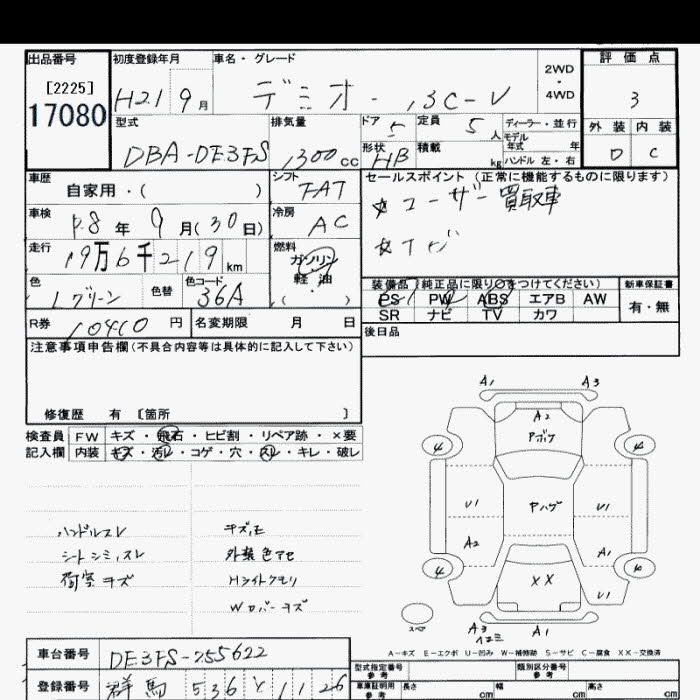 出品番号
[2225]
17080
初度登録年月
H21 9月
車名・グレード
デミオ - 13C-V
2WD
・
4WD
評価点
3
型式
DBA-DE3FS
排気量
1300cc
ドア 5
定員 5人
ディーラー・並行
モデル
年式 年
形状 HB
積載 kg
ハンドル 左・右
外装 内装
D C
車歴
自家用・( )
シフト
FAT
セールスポイント (正常に機能するものに限ります)
☆ユーザー買取車
車検
R8年 9月(30日)
冷房
AC
走行
19万6千219km
燃料
ガソリン
軽・油
( )
色
Lグリーン
色替
色コード
36A
装備品(純正品に限り○をつけてください)
PS PW ABS エアB AW
SR ナビ TV カワ
新車保証書
有・無
R券 10410円
名変期限 月 日
後日品
注意事項申告欄(不具合内容等は具体的に記入して下さい)
修復歴 有 〔箇所 〕
検査員
記入欄
FW キズ・飛石・ヒビ割・リペア跡・×要
内装 キズ・汚レ・コゲ・穴・スレ・キレ・破レ
ハンドルスレ
シートシミ、スレ
荷室キズ
キズ、凹
外装色アセ
Hライトクモリ
Wカバーキズ
A1 A3
A2
Pボケ
4 4
U1 Pハゲ U1
A2 A1
4 XX 4
U1
スペア
A3 A1
A－キズ E－エクボ U－凹み W－補修跡 S－サビ C－腐食 XX－交換済
車台番号 DE3FS-255622
登録番号 群馬 536 と 1126
型式指定番号
参考
類別区分番号
参考
車庫証明用
参考
長さ cm
幅 cm
高さ cm